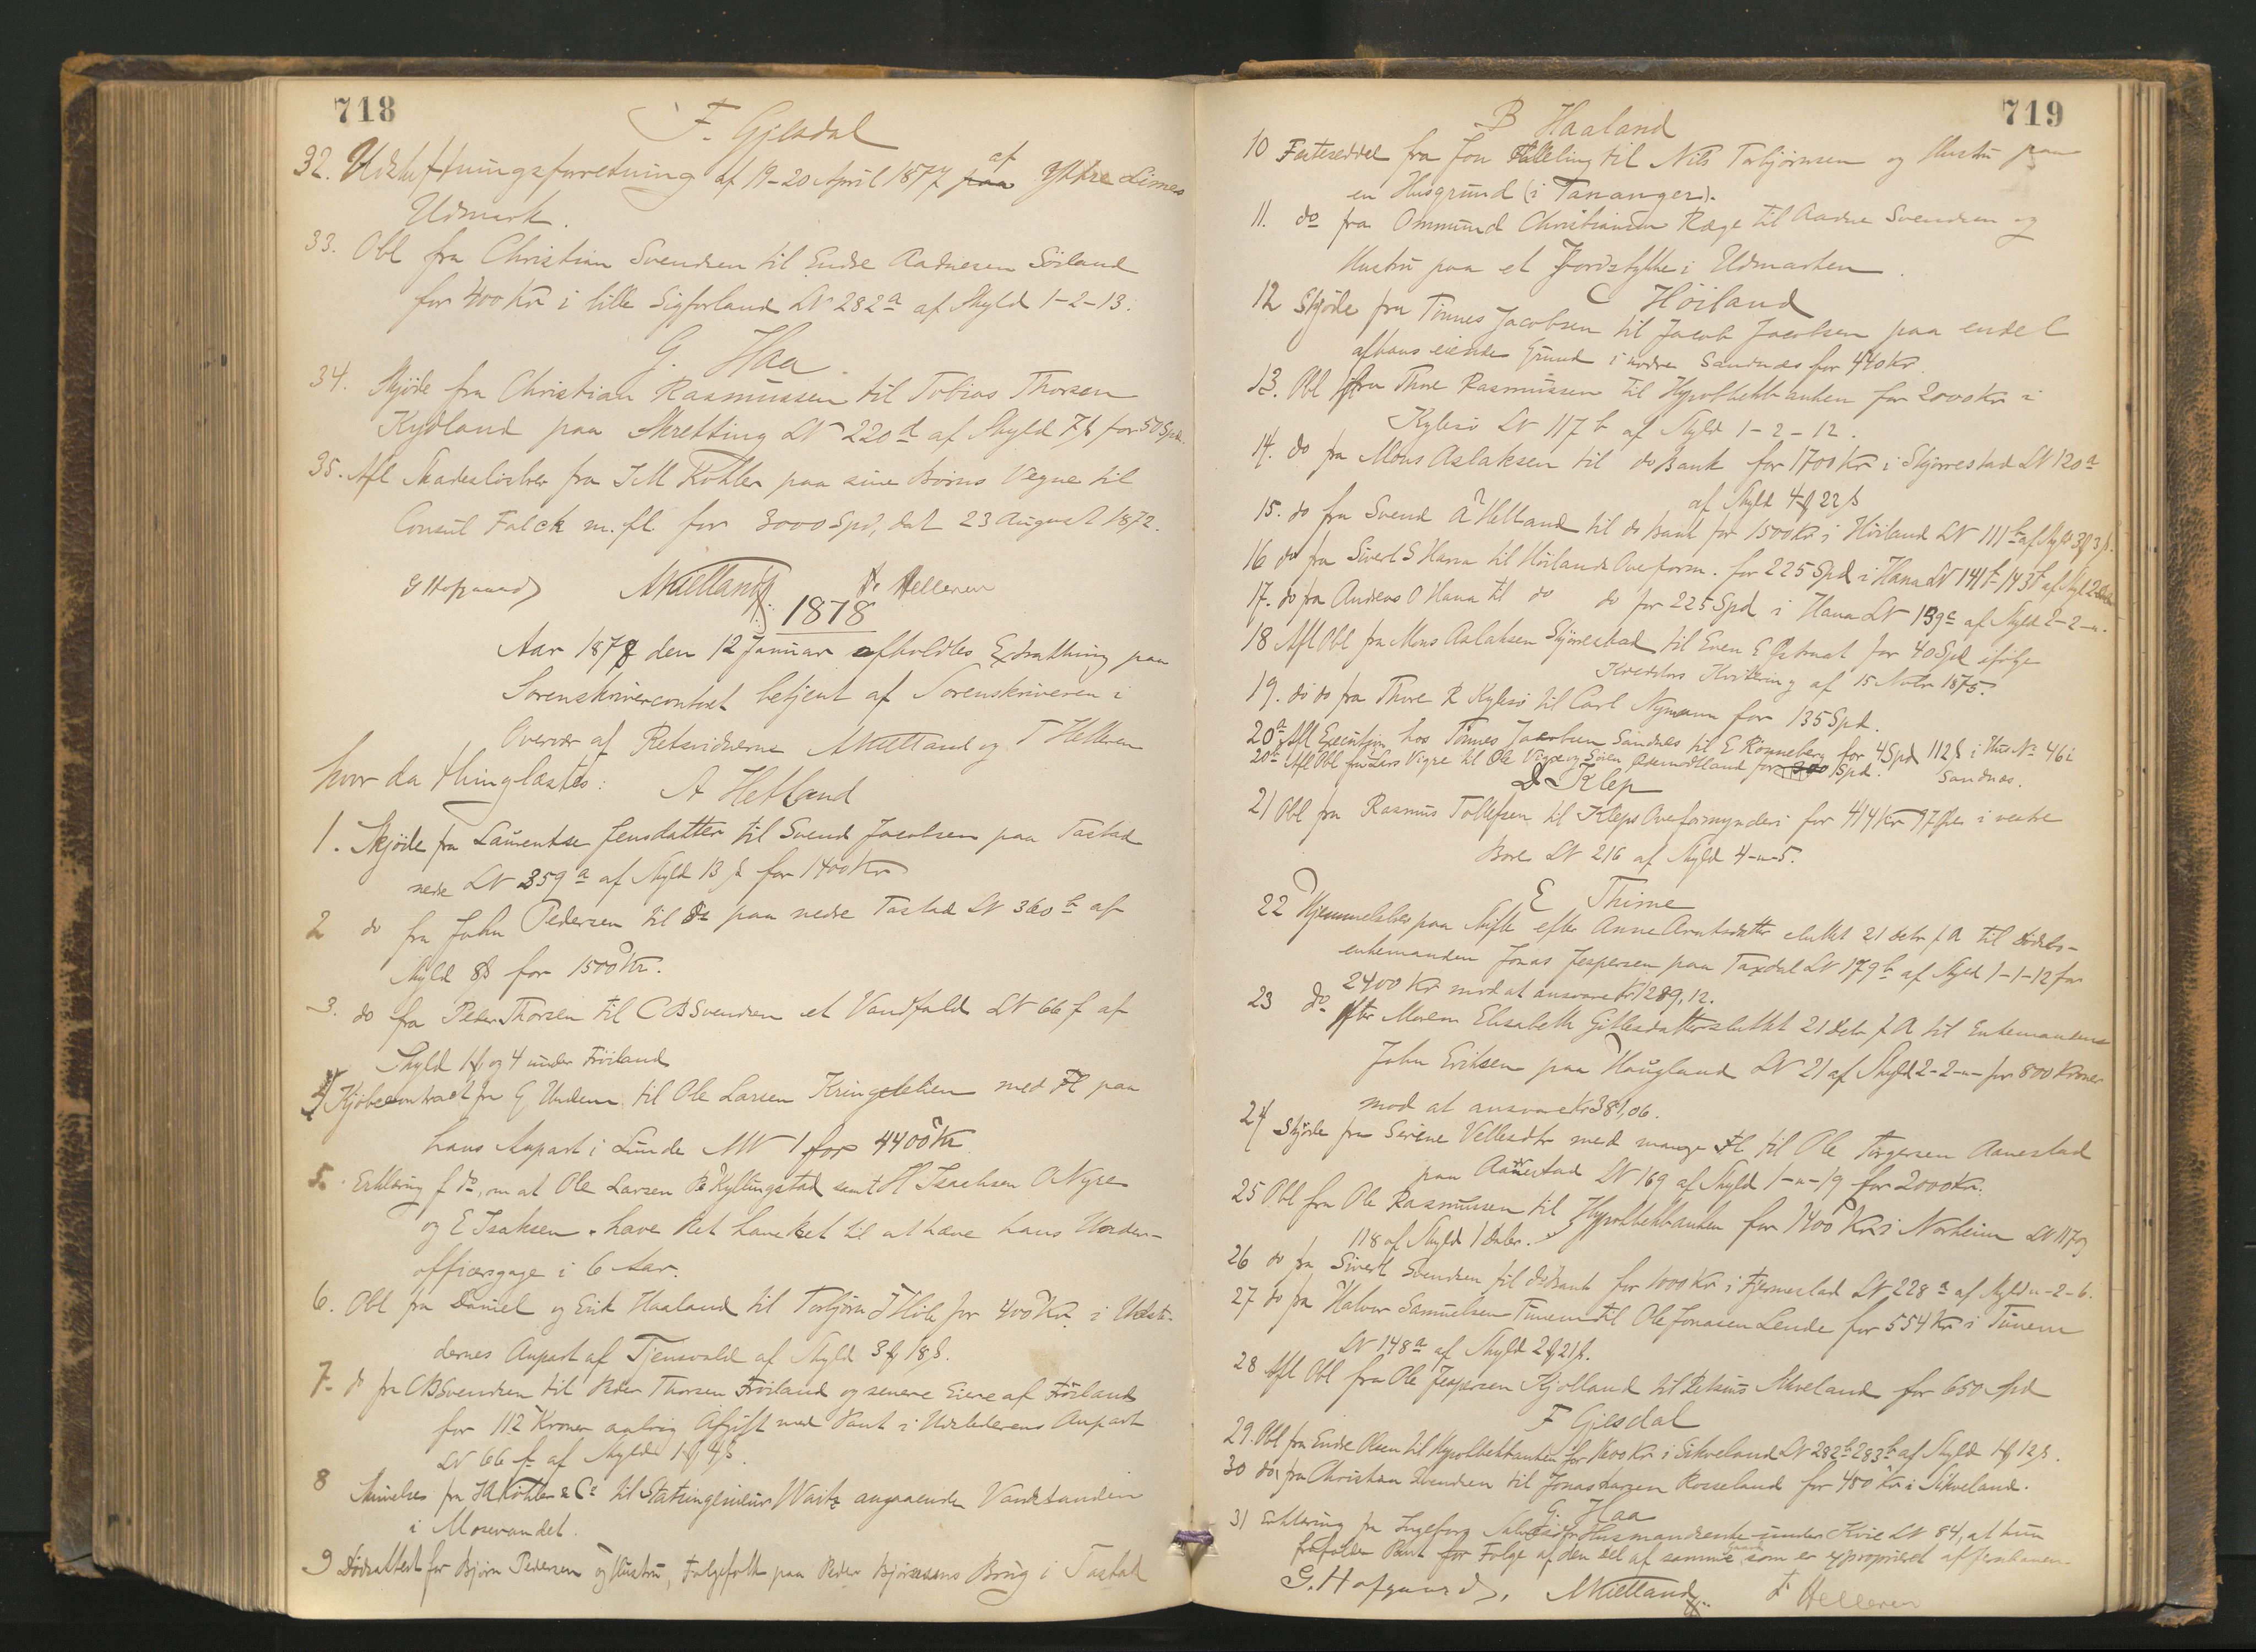 718
F. Gjesdal
32. Udskiftningsforretning af 19-20 April 1877 paa af Yttre Limes
Udmark.
33. Obl fra Christian Svendsen til Endre Aadnesen Söiland
for 400 Kr i lille Sigforland LN 282a af Skyld 1-2-13.
G. Haa.
34. Skjöde fra Christian Rasmussen til Tobias Thorsen
Kydland paa Skretting LN 220d af Skyld 7ß for 50 Spd.
35. Afl Skadeslösbrev fra J M Kohler paa sine Börns Vegne til
Consul Falck m. fl for 3000 Spd, dat 23 August 1872.
G Hofgaard AKielland T. Helleren
1878
Aar 1878 den 12 Januar afholdtes Extrathing paa
Sorenskrivercontoret betjent af Sorenskriveren i
Overvær af Retsvidnerne AKielland og T Helleren
hvor da thinglæstes:
A Hetland
1. Skjöde fra Laurentse Jensdatter til Svend Jacobsen paa Tastad
nedre LN 359a af Skyld 13 ß for 1400 Kr
2 do fra John Pedersen til do paa nedre Tastad LN 360b af
Skyld 8ß for 1500 Kr.
3. do fra Peder Thorsen til C B Svendsen et Vandfald LN 66 f af
Skyld 1 og 4 under Fröiland
4 Kjöbecontract fra G Undem til Ole Larsen Kringelebien med Fl paa
hans Anpart i Lunde MN 1 for 4400 Kr
5. Erklæring f do, om at Ole Larsen Kyllingstad samt H Isachsen A Nyre
og E Isaksen have Ret til at hæve hans Under-
officersgage i 6 Aar.
6. Obl fra Daniel og Erik Haaland til Torbjörn T Hole for 400 Kr i Udste-
dernes Anpart af Tjensvold af Skyld 3 18ß.
7. do fra C B Svendsen til Peder Thorsen Fröiland og senere Eiere af Fröiland
for 112 Kroner aarlig Afgift med Pant i Udstederens Anpart
LN 66 f af Skyld 1 4ß.
8 Skrivelse fra Kohler & Co til Statsingenieur Waitz angaaende Vandstanden
i Mosevandet.
9 Dödsattest for Björn Pedersen og Hustru, Folgefolk paa Peder Björnsens Brug i Tastad
719
B Haaland
10 Festeseddel fra Jon Hælleling til Nils Torbjörnsen og Hustru paa
en Husgrund (i Tananger).
11. do fra Ommund Christiansen Ræge til Aadne Svendsen og
Hustru paa et Jordstykke i Udmarken.
C Höiland
12 Skjöde fra Tönnes Jacobsen til Jacob Jacobsen paa endel
af hans eiende Grund i nordre Sandnæs for 440 Kr.
13. Obl fra Thore Rasmussen til Hypothekbanken for 2000 Kr i
Kylesö LN 117 b af Skyld 1-2-12.
14. do fra Mons Aslaksen til do Bank for 1700 Kr i Skjörrestad LN 120a
af Skyld 4 22ß
15. do fra Svend A Helland til do Bank for 1500 Kr i Höiland LN 111b af Skyld 3 3ß.
16 do fra Sivert S Hana til Höilands Overform. for 225 Spd i Hana LN 141 143 af Skyld 2
17. do fra Andreas O Hana til do do for 225 Spd i Hana LN 139a af Skyld 2-2-"-
18 Afl Obl fra Mons Aslaksen Skjörrestad til Even E Østraat for 40 Spd ifölge
Kreditors Kvittering af 15 Novbr 1875.
19. do do fra Thore R Kylesö til Carl Nymann for 135 Spd.
20a Afl Execution hos Tönnes Jacobsen Sandnes til E Rönneberg for 4 Spd 112ß i Hus No 46 i
Sandnæs.
20a Afl Obl fra Lars Vigre til Ole Vigre og Sören for 300 Spd.
D Klep
21 Obl fra Rasmus Tollefsen til Kleps Overformynderi for 414 Kr 97 Øre i vestre
Bore LN 216 af Skyld 4-"-5.
E Thime
22 Hjemmelsbrev paa Skifte efter Anne Arntsdatter sluttet 21 Decbr f. A til
enkemanden Jonas Jespersen paa Taxdal LN 179b af Skyld 1-1-12 for
2400 Kr mod at ansvare Kr 1289,12.
23 do efter Maren Elisabeth Gillesdatter sluttet 21 Decbr f. A til Enkemanden
John Eriksen paa Haugland LN 21 af Skyld 2-2-"- for 800 Kroner
mod at ansvare Kr 381,06.
24 Skjöde fra Serine Vellesdtr med mange Fl til Ole Torgersen Aanestad
paa Aanestad LN 169 af Skyld 1-"-19 for 2000 Kr.
25 Obl fra Ole Rasmussen til Hypothekbanken for 1400 Kr i Norheim LN 117 og
118 af Skyld 1 Daler.
26 do fra Sivert Svendsen til do Bank for 1000 Kr i Fjermestad LN 228a af Skyld "-2-6.
27 do fra Halvor Samuelsen Tunem til Ole Jonasen Lende for 554 Kr i Tunem
LN 148a af Skyld 2 21ß.
28 Afl Obl fra Ole Jespersen Kjolland til Petrus Skveland for 650 Spd
F Gjesdal
29. Obl fra Endre Olsen til Hypothekbanken for 1600 Kr i Sikveland LN 282b 283b af Skyld 1 12ß.
30 do fra Christian Svendsen til Jonas Larsen Rosseland for 480 Kr i Sikveland.
G. Haa
31 Erklæring fra Ingeborg Husmandsenke under Kvie LN 84, at hun
frafalder Pant for Folge af den Del af samme som er exproprieret af Jernbanen
G. Hofgaard, AKielland T Helleren